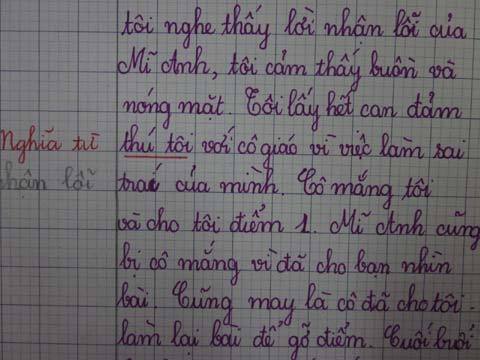 tôi nghe thấy lời nhận lỗi của
Mĩ Anh, tôi cảm thấy buồn và
nóng mặt. Tôi lấy hết can đảm
Nghĩa từ thú tôi với cô giáo vì việc làm sai
nhận lỗi trái của mình. Cô mắng tôi
và cho tôi điểm 1. Mĩ Anh cũng
bị cô mắng vì đã cho bạn nhìn
bài. Cũng may là cô đã cho tôi
làm lại bài để gỡ điểm. Cuối buổi